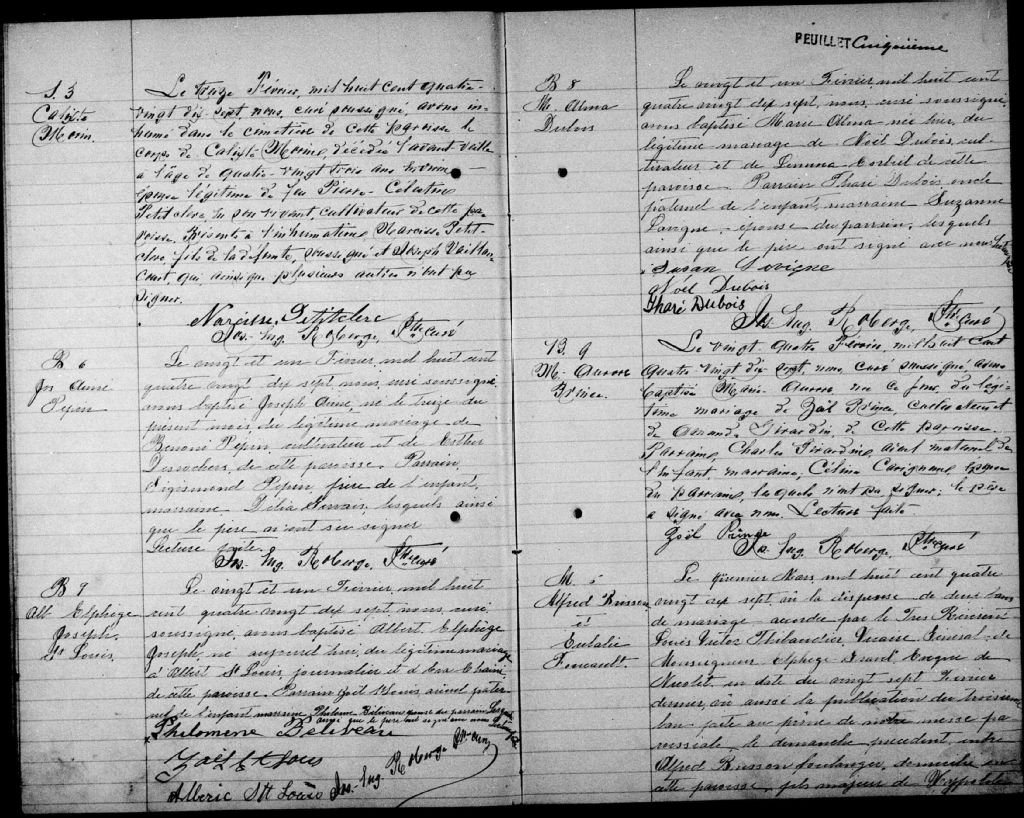 S. 5
Calixte
Morin
Le treize Février, mil huit cent quatre-
vingt dix sept, nous curé soussigné avons in-
humé dans le cimetière de cette paroisse le
corps de Calixte Morin, décédée l'avant veille
à l'âge de quatre-vingt trois ans environ
épouse légitime de feu Pierre-Célestin
Petitclerc, en son vivant, cultivateur de cette pa-
roisse. Présents à l'inhumation, Narcisse Petit-
clerc, fils de la défunte, soussigné et Joseph Vaillan-
court, qui, ainsi que plusieurs autres n'ont pu
signer.
Narcisse Petitclerc
Jos. Eug. Roberge, Ptre Curé
B 6
Jos Aimé
Pepin
Le vingt et un Février mil huit cent
quatre vingt dix sept nous, curé soussigné,
avons baptisé Joseph Aimé, né le treize du
présent mois, du légitime mariage de
Benoni Pepin, cultivateur et de Esther
Desrochers, de cette paroisse. Parrain,
Sigismond Pepin, frère de l'enfant,
marraine Délia Gervais, lesquels ainsi
que le père n'ont su signer
Lecture faite.
Jos. Eug. Roberge, Ptre Curé
B 7
Alb Elphège
Joseph
St Louis
Le vingt et un Février mil huit
cent quatre vingt dix sept nous, curé
soussigné, avons baptisé Albert Elphège
Joseph né aujourd'hui, du légitime mariage
d'Albert St Louis journalier et d'Eva
de cette paroisse. Parrain Joël St Louis aïeul pater-
nel de l'enfant marraine Philomène Béliveau épouse du parrain lesquels
ainsi que le père ont signé avec nous Lecture faite
Philomene Beliveau
Joël St Louis
Alberic St Louis Jos. Eug. Roberge Ptre Curé
FEUILLET Cinquième
B 8
M. Alma
Dubois
Le vingt et un Février mil huit cent
quatre vingt dix sept, nous, curé soussigné,
avons baptisé Marie Alma née hier, du
légitime mariage de Noël Dubois, cul-
tivateur et de Corbeil de cette
paroisse. Parrain Tharé Dubois oncle
paternel de l'enfant, marraine Suzanne
épouse du parrain, lesquels
ainsi que le père ont signé avec nous Lecture faite
Susan
Noël Dubois
Tharé Dubois
Jos. Eug. Roberge, Ptre Curé
B. 9
M. Aurore
Prince
Le vingt quatre Février mil huit cent
quatre vingt dix sept, nous curé soussigné, avons
baptisé Marie Aurore, née ce jour du légi-
time mariage de Joël Prince, cultivateur et
de Amanda Girardin, de cette paroisse.
Parrain, Charles Girardin, aïeul maternel de
l'enfant, marraine, Célina Carignan, épouse
du parrain, lesquels n'ont pu signer; le père
a signé avec nous. Lecture faite
Joël Prince
Jos. Eug. Roberge, Ptre Curé
M.
Alfred Busson
&
Eulalie
Foucault
Le premier Mars, mil huit cent quatre
vingt dix sept, vu la dispense de deux bans
de mariage accordée par le Très Révérend
Louis Victor Thibaudier, Vicaire Général de
Monseigneur Elphège Gravel Evêque de
Nicolet en date du vingt sept Février
dernier, vu aussi la publication du troisième
ban faite au prône de notre messe pa-
roissiale le dimanche précédent, entre
Alfred Busson boulanger, domicilié en
cette paroisse, fils majeur de